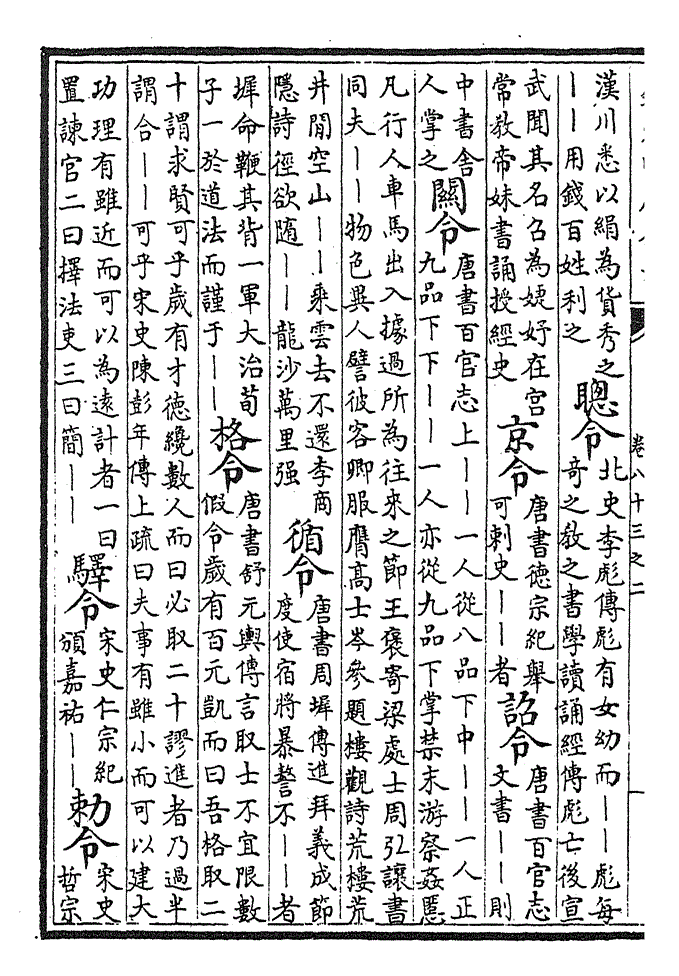 卷八十三之二
漢川悉以絹為貨秀之
——用錢百姓利之
聰令
北史李彪傳彪有女幼而——彪每
奇之教之書學讀誦經傳彪亡後宣
武聞其名召為婕妤在宮
常教帝妹書誦授經史
京令
唐書德宗紀舉
可刺史——者
詔令
唐書百官志
文書——則
中書舍
人掌之
關令
唐書百官志上——一人從八品下中——一人正
九品下下——一人亦從九品下掌禁末游察姦慝
凡行人車馬出入據過所為往來之節王褒寄梁處士周弘讓書
同夫——物色異人譬彼客卿服膺高士岑參題樓觀詩荒樓荒
井閒空山——乘雲去不還李商
隱詩徑欲隨——龍沙萬里强
循令
唐書周墀傳進拜義成節
度使宿將暴謷不——者
墀命鞭其背一軍大治荀
子一於道法而謹于——
格令
唐書舒元輿傳言取士不宜限數
假令歲有百元凱而曰吾格取二
十謂求賢可乎歲有才德纔數人而曰必取二十謬進者乃過半
謂合——可乎宋史陳彭年傳上疏曰夫事有雖小而可以建大
功理有雖近而可以為遠計者一曰
置諫官二曰擇法吏三曰簡——
驛令
宋史仁宗紀
頒嘉祐——
勅令
宋史
哲宗